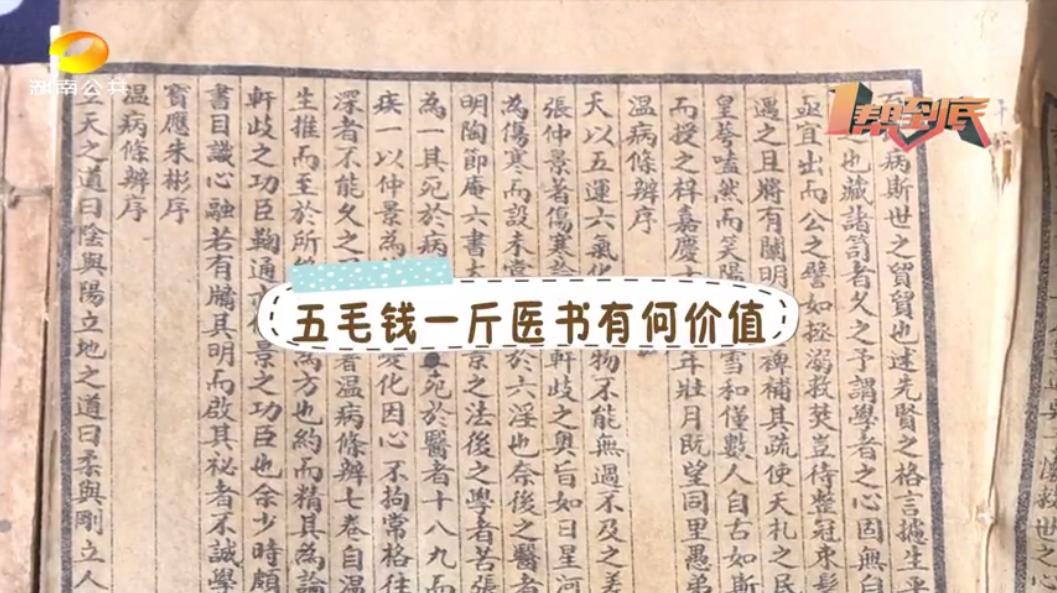 湖南公共
帮到底
病斯世之貿貿也述先賢之格言攄生平
也藏諸笥者久之予謂學者之心固無自
亟宜出而公之譬如拯溺救焚豈待整冠束髮
遇之且將有闡明 裨補其疏使夭札之民
皇荂嗑然而笑陽 雪和僅數人自古如斯
而授之梓嘉慶十 年壯月既望同里愚弟
溫病條辨序
天以五運六氣化 物不能無過不及之差
張仲景著傷寒論 軒歧之奧旨如日星河
為傷寒而設未嘗 於六淫也奈後之醫者
明陶節庵六書大 景之法後之學者苦張
為一其死於病 死於醫者十八九而
疾一以仲景為 變化因心不拘常格往
深者不能久之 著溫病條辨七卷自溫
生推而至於所 為方也約而精其為論
軒歧之功臣鞠通 景之功臣也余少時頗
書目識心融若有牖其明而啟其祕者不誠學
寶應朱彬序
溫病條辨序
立天之道曰陰與陽立地之道曰柔與剛立人
五毛钱一斤医书有何价值